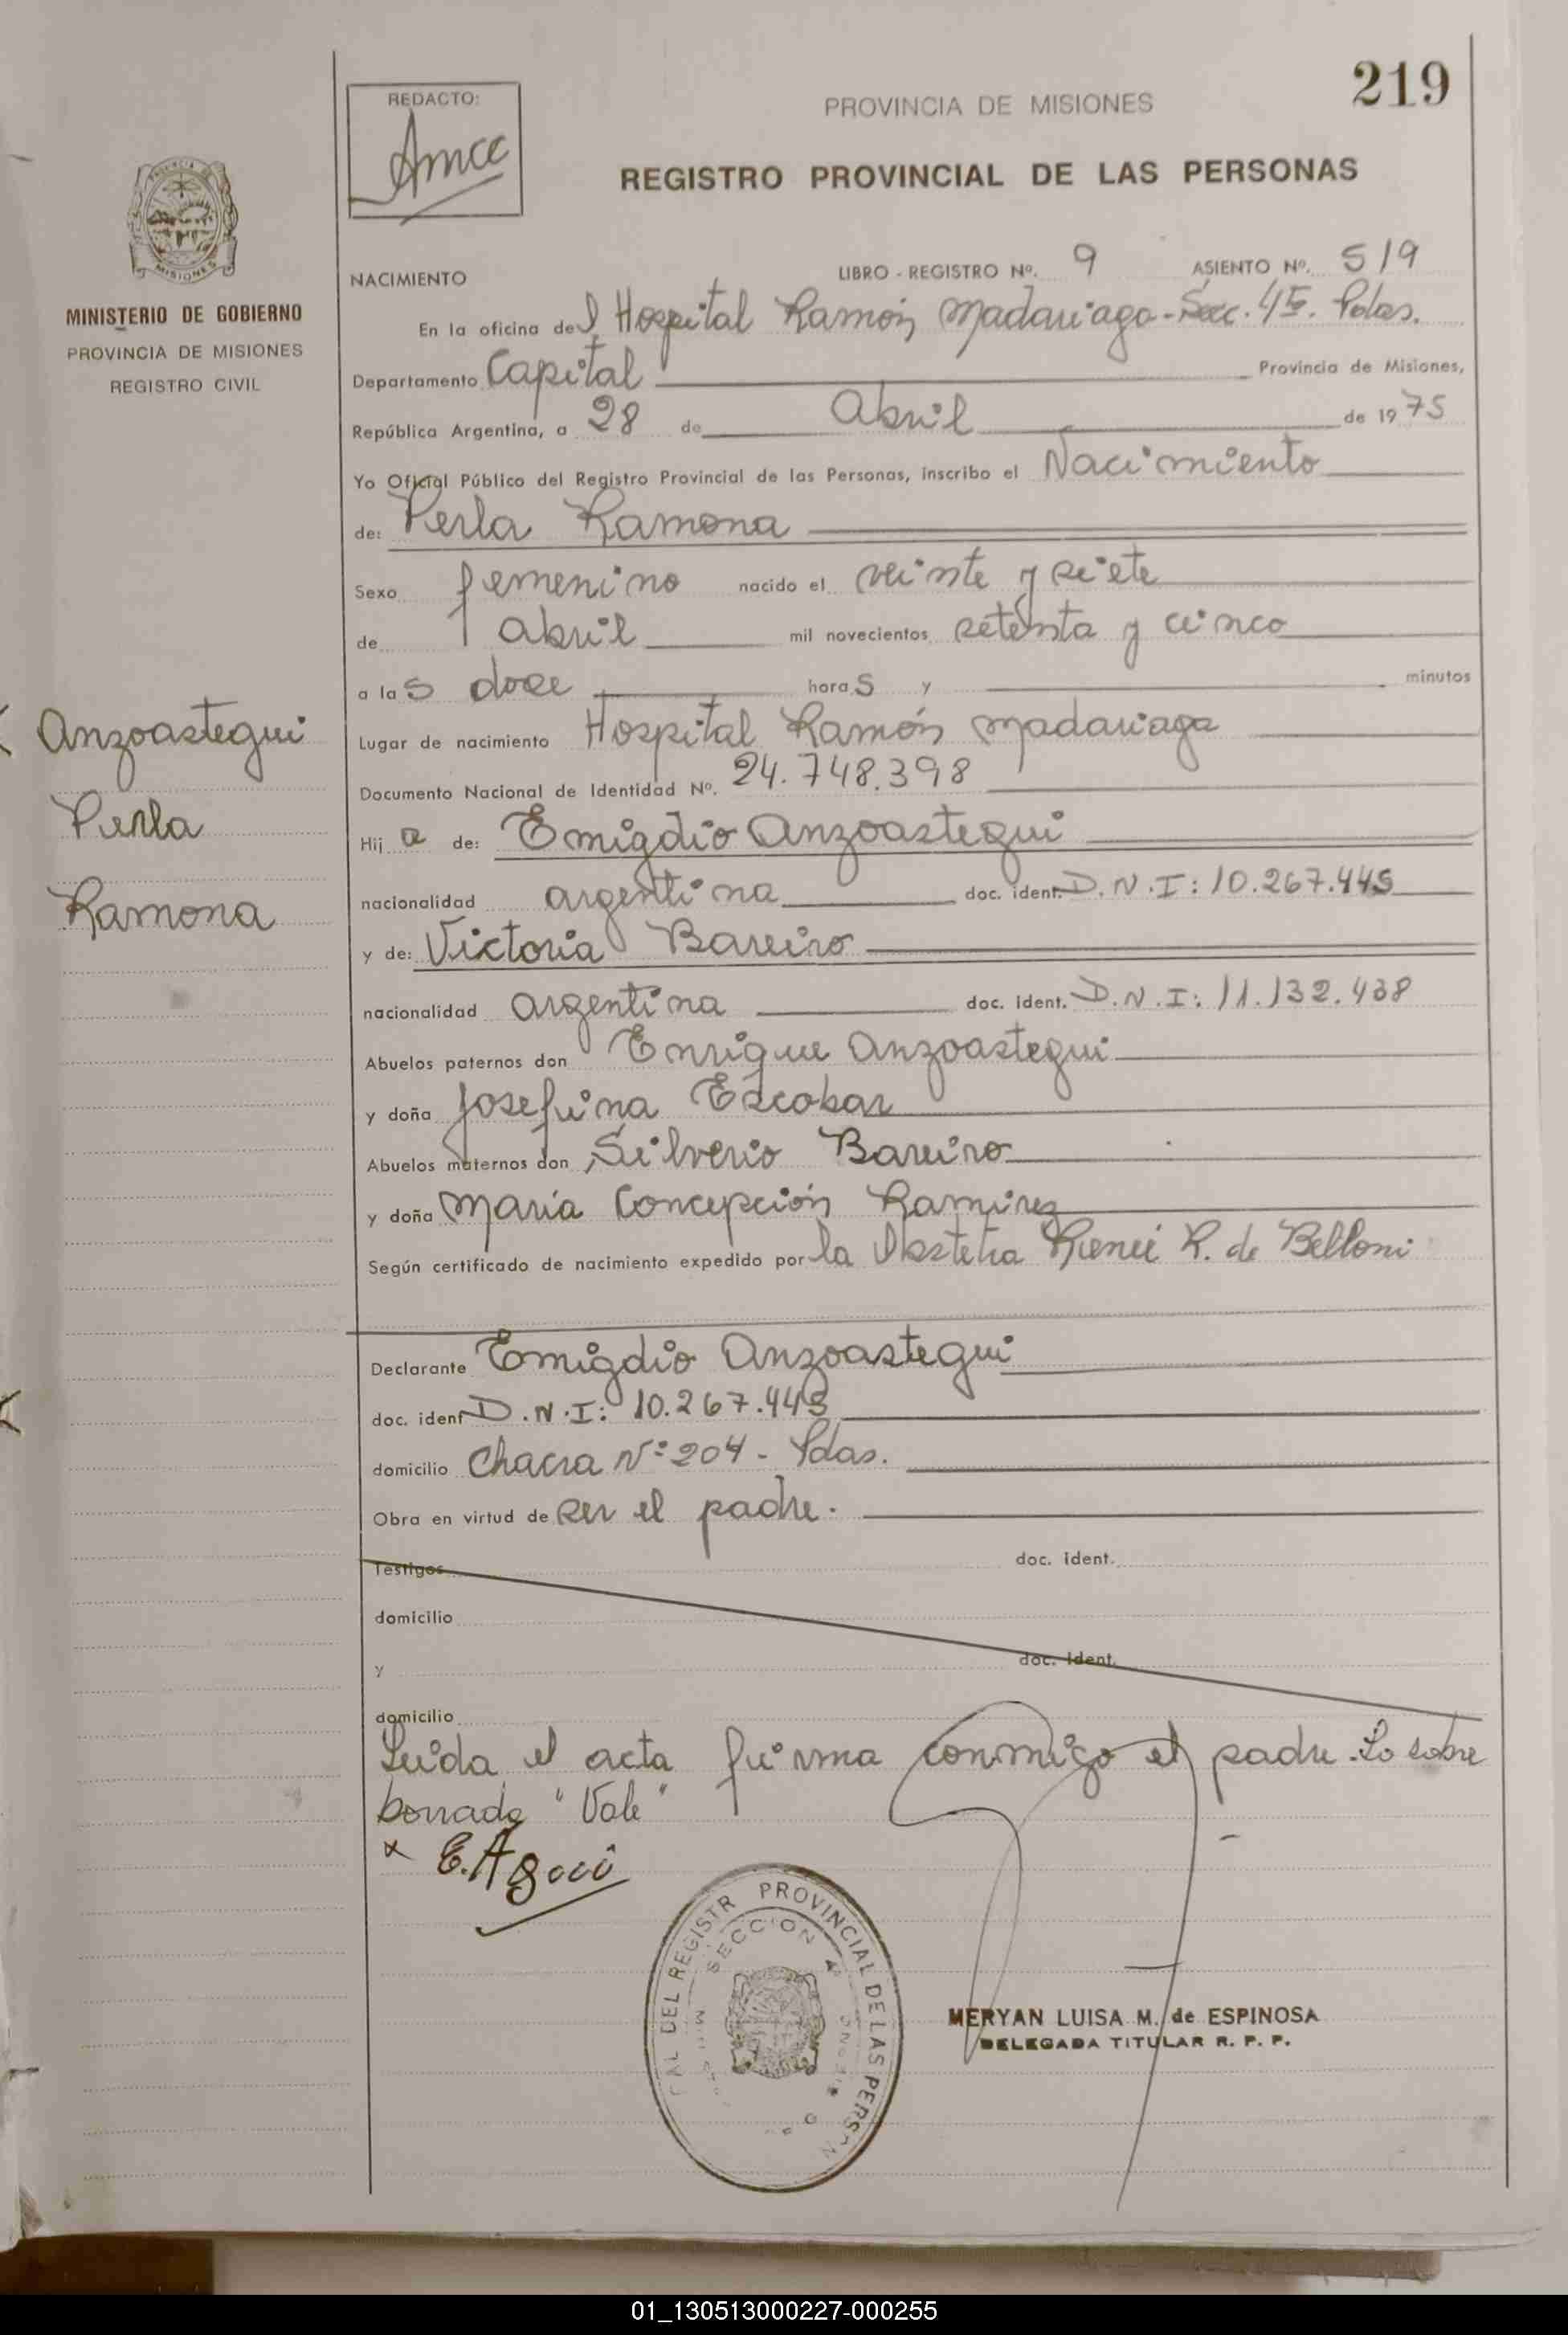 219
REDACTO:
PROVINCIA DE MISIONES
REGISTRO PROVINCIAL DE LAS PERSONAS
MINISTERIO DE GOBIERNO
PROVINCIA DE MISIONES
REGISTRO CIVIL
NACIMIENTO LIBRO - REGISTRO Nº. 9 ASIENTO Nº. 519
En la oficina del Hospital Ramón Madariaga - Secc. 4ta. Pdas.
Departamento Capital Provincia de Misiones,
República Argentina, a 28 de Abril de 1975
Yo Oficial Público del Registro Provincial de las Personas, inscribo el Nacimiento
de: Perla Ramona
Sexo femenino nacido el veinte y siete
de Abril mil novecientos setenta y cinco
a las doce horas y minutos
Anzoastegui
Perla
Ramona
Lugar de nacimiento Hospital Ramón Madariaga
Documento Nacional de Identidad Nº. 24.748.398
Hija de: Emigdio Anzoastegui
nacionalidad argentina doc. ident. D.N.I: 10.267.445
y de: Victoria Bareiro
nacionalidad argentina doc. ident. D.N.I: 11.132.438
Abuelos paternos don Enrique Anzoastegui
y doña Josefina Escobar
Abuelos maternos don Silverio Bareiro
y doña María Concepción Ramirez
Según certificado de nacimiento expedido por la Obstetra R. de Belloni
Declarante Emigdio Anzoastegui
doc. ident D.N.I: 10.267.445
domicilio Chacra Nº 204 - Pdas.
Obra en virtud de ser el padre.
Testigos doc. ident.
domicilio
y doc. ident.
domicilio
Leida el acta firma conmigo el padre. Lo sobre
borrado "Vale"
PROVINCIAL DE LAS PERSON
SECCION 4ª
MERYAN LUISA M. de ESPINOSA
DELEGADA TITULAR R. P. P.
01_130513000227-000255